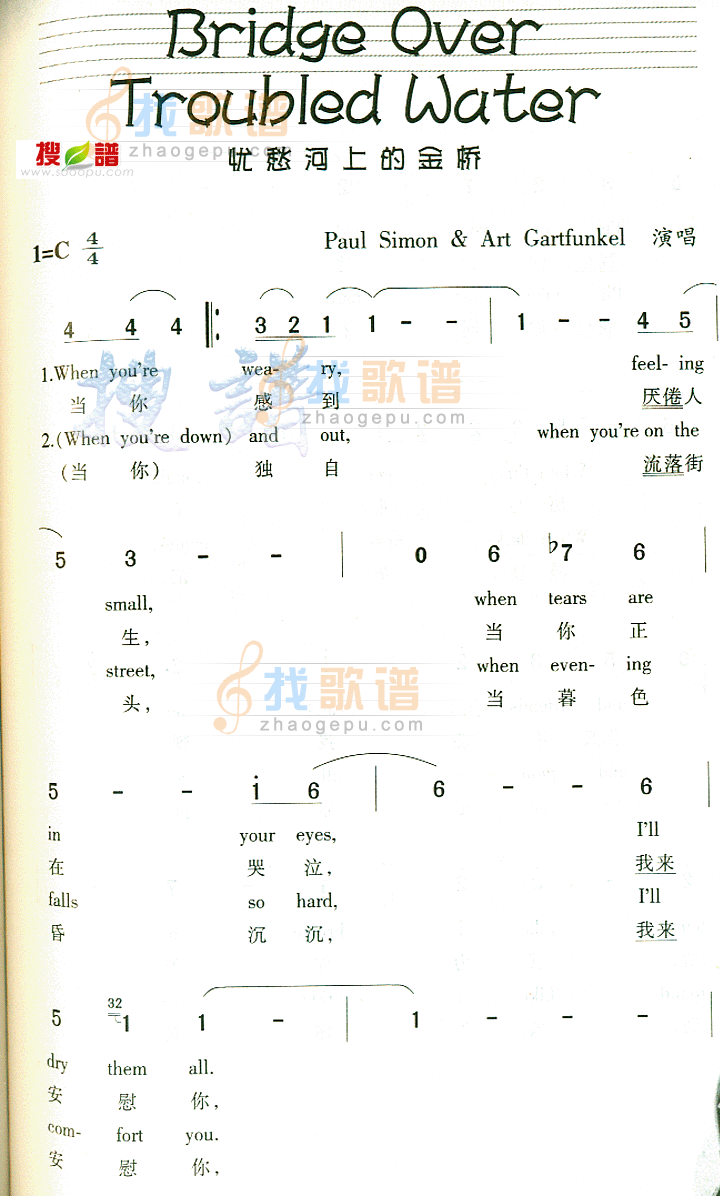 Bridge Over
Troubled Water
找歌谱
zhaogepu.com
搜 譜
www.sooopu.com
忧愁河上的金桥
1=C 4/4
Paul Simon & Art Gartfunkel 演唱
4 4 4 ‖: 3 2 1 1 - - | 1 - - 4 5 |
1.When you're wea- ry, feel- ing
当 你 感 到 厌倦人
2.(When you're down) and out, when you're on the
(当 你) 独 自 流落街
搜 譜
找歌谱
zhaogepu.com
5 3 - - | 0 6 ♭7 6 |
small, when tears are
生, 当 你 正
street, when even- ing
头, 当 暮 色
找歌谱
zhaogepu.com
5 - - i 6 | 6 - - 6
in your eyes, I'll
在 哭 泣, 我来
falls so hard, I'll
昏 沉 沉, 我来
32
5 1 1 - | 1 - - -
dry them all.
安 慰 你,
com- fort you.
安 慰 你,